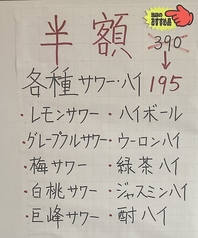 半額
390
↓
各種サワー・ハイ 195
・レモンサワー ・ハイボール
・グレープフルサワー ・ウーロンハイ
・梅サワー ・緑茶ハイ
・白桃サワー ・ジャスミンハイ
・巨峰サワー ・酎ハイ